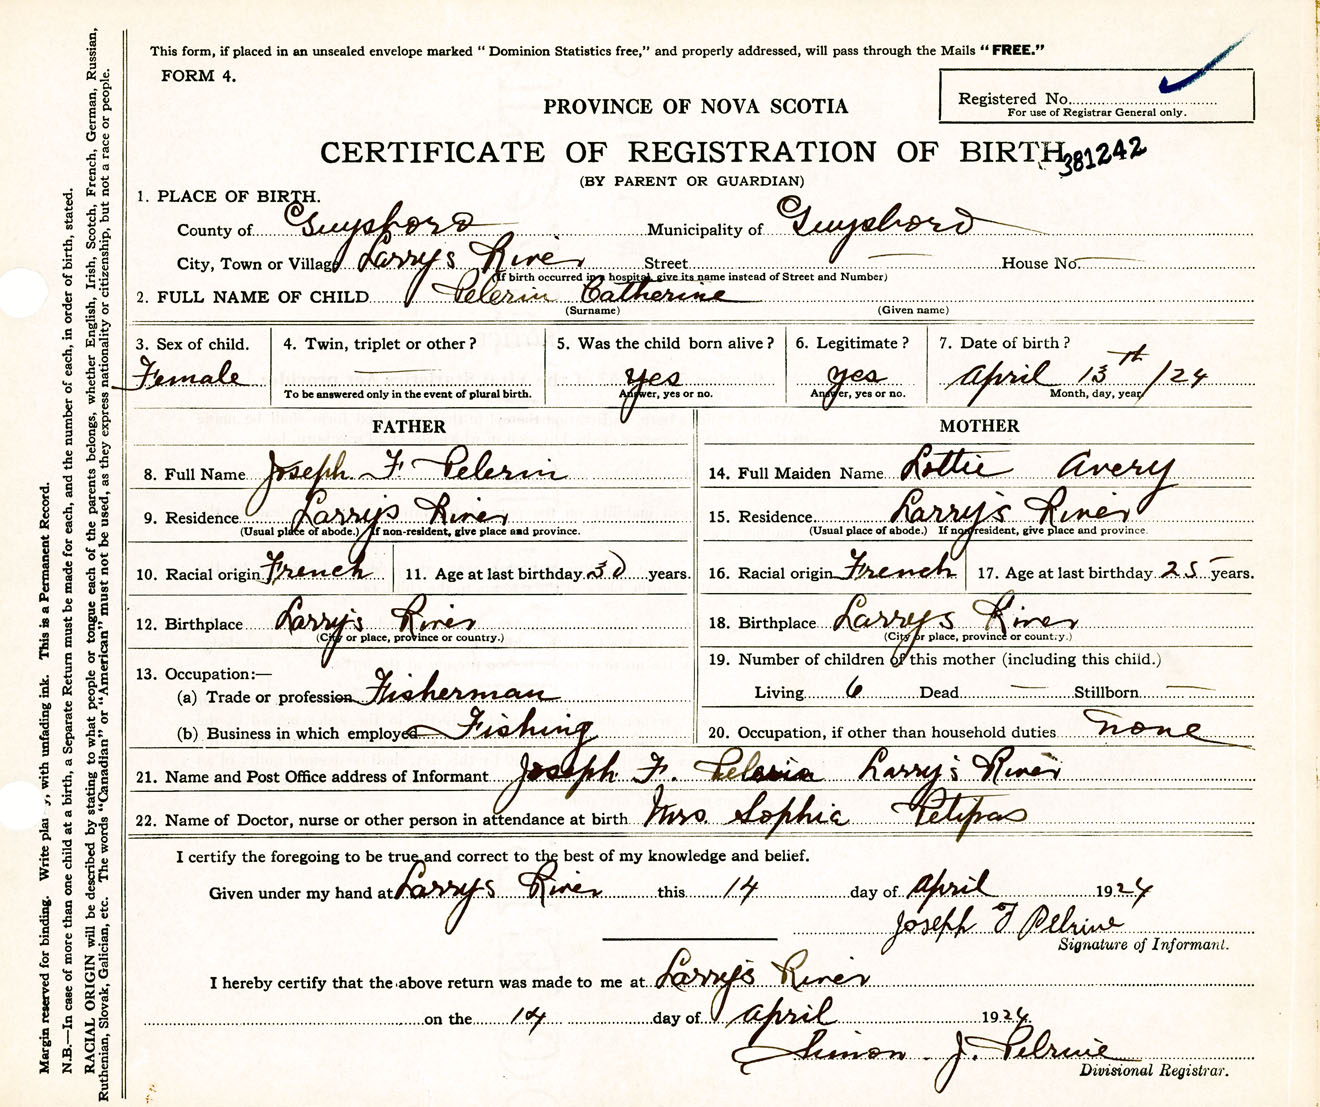 This form, if placed in an unsealed envelope marked “Dominion Statistics free,” and properly addressed, will pass through the Mails “FREE.”
FORM 4.
Registered No.
For use of Registrar General only.
PROVINCE OF NOVA SCOTIA
CERTIFICATE OF REGISTRATION OF BIRTH
381242
(BY PARENT OR GUARDIAN)
1. PLACE OF BIRTH.
County of Guysboro Municipality of Guysboro
City, Town or Village Larrys River Street — House No. —
(If birth occurred in a hospital give its name instead of Street and Number)
2. FULL NAME OF CHILD Pelerin Catherine
(Surname) (Given name)
3. Sex of child. 4. Twin, triplet or other? 5. Was the child born alive? 6. Legitimate? 7. Date of birth?
Female — yes yes April 13th /24
To be answered only in the event of plural birth. Answer, yes or no. Answer, yes or no. Month, day, year
FATHER MOTHER
8. Full Name Joseph F Pelerin 14. Full Maiden Name Lottie Avery
9. Residence Larry's River 15. Residence Larry's River
(Usual place of abode.) If non-resident, give place and province. (Usual place of abode.) If non-resident, give place and province.
10. Racial origin French 11. Age at last birthday 30 years. 16. Racial origin French 17. Age at last birthday 25 years.
12. Birthplace Larry's River 18. Birthplace Larrys River
(City or place, province or country.) (City or place, province or country.)
13. Occupation:— 19. Number of children of this mother (including this child.)
(a) Trade or profession Fisherman Living 6 Dead — Stillborn —
(b) Business in which employed Fishing 20. Occupation, if other than household duties none
21. Name and Post Office address of Informant Joseph F. Pelerin Larry's River
22. Name of Doctor, nurse or other person in attendance at birth Mrs. Sophia Petipas
I certify the foregoing to be true and correct to the best of my knowledge and belief.
Given under my hand at Larrys River this 14 day of April 1924
Joseph F Pelrine
Signature of Informant.
I hereby certify that the above return was made to me at Larry's River
on the 14 day of April 1924
Simon. J. Pelrine
Divisional Registrar.
Margin reserved for binding. Write plai y, with unfading ink. This is a Permanent Record.
N.B.—In case of more than one child at a birth, a Separate Return must be made for each, and the number of each, in order of birth, stated.
RACIAL ORIGIN will be described by stating to what people or tongue each of the parents belongs, whether English, Irish, Scotch, French, German, Russian,
Ruthenian, Slovak, Galician, etc. The words “Canadian” or “American” must not be used, as they express nationality or citizenship, but not a race or people.